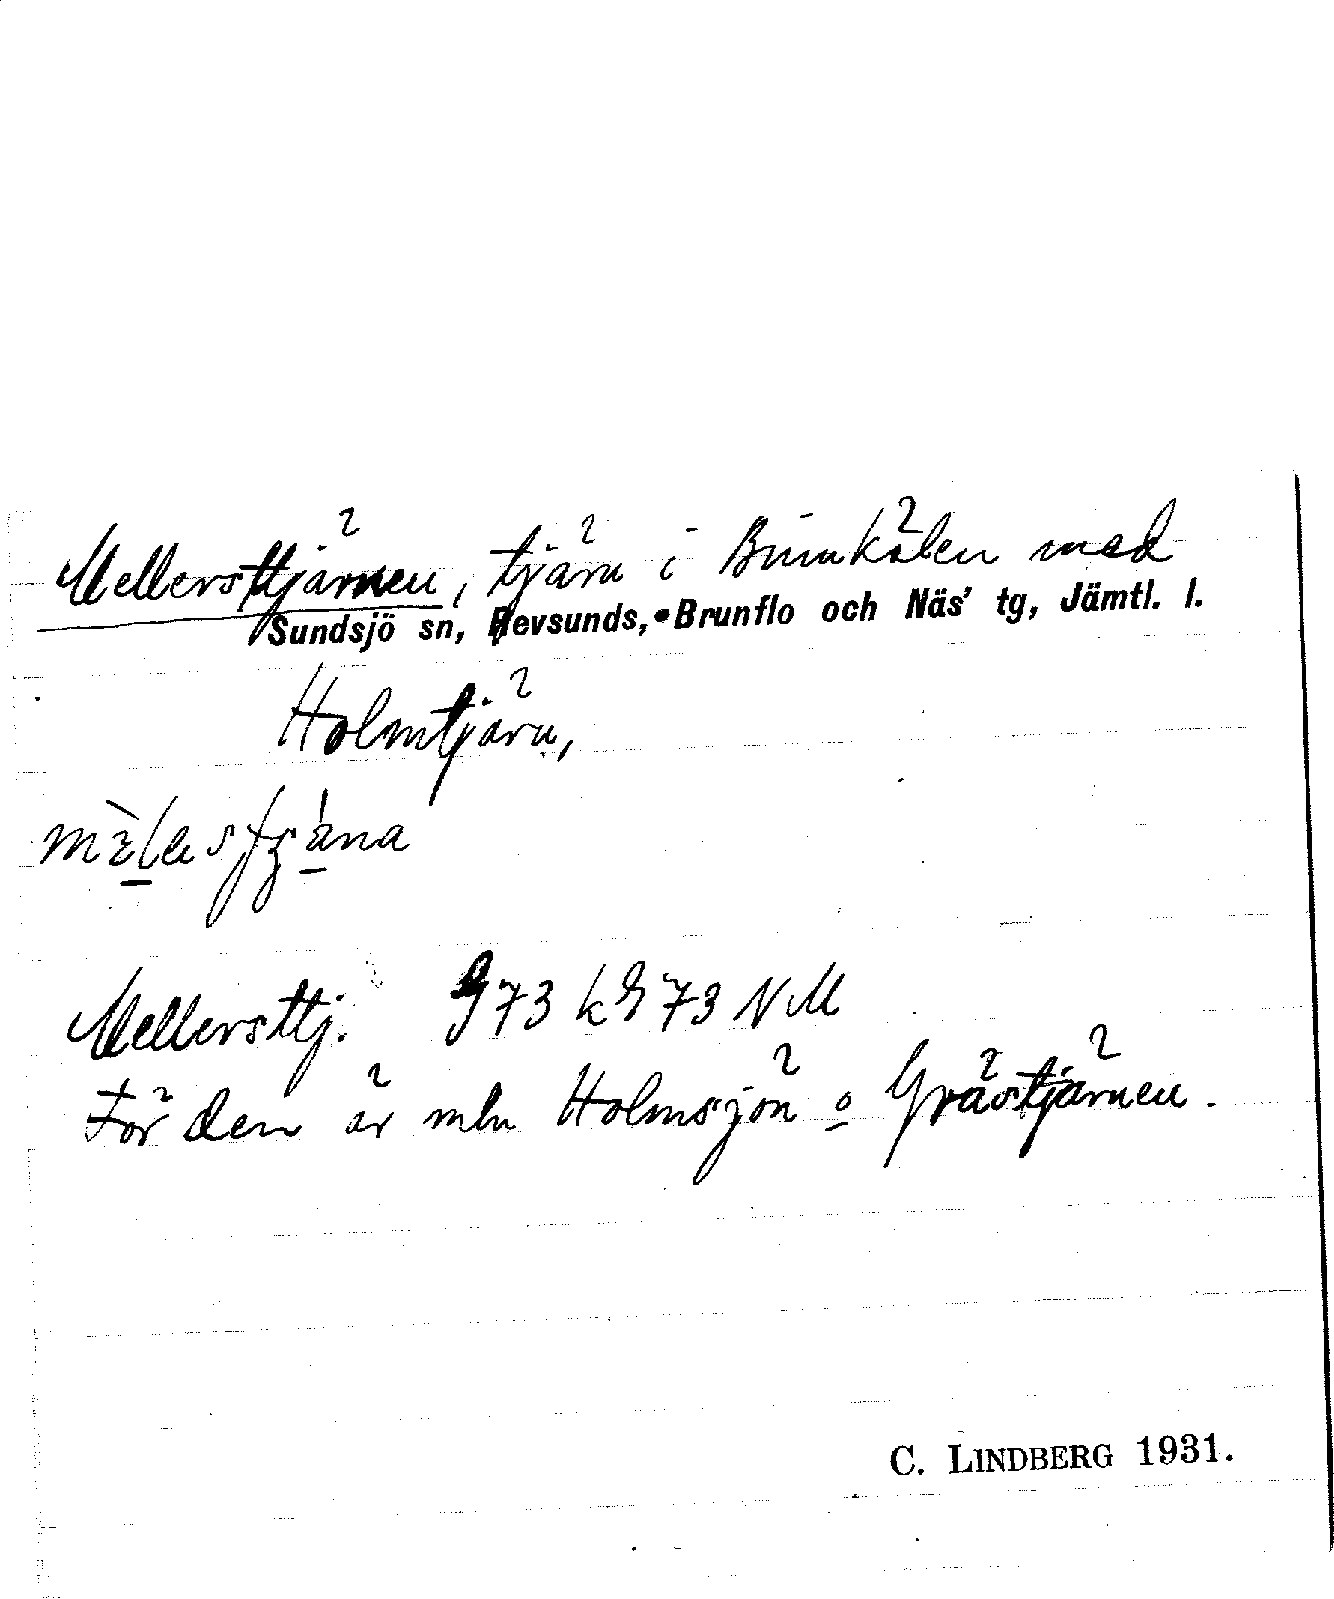 Mellersttjärnen, tjärn i Bினkölen med
Sundsjö sn, Revsunds, Brunflo och Näs' tg, Jämtl. l.
Holmtjärn,
Mellersttj. G73 k G73 NM
För den är mln Holmsjön o Grästjärnen.
C. LINDBERG 1931.